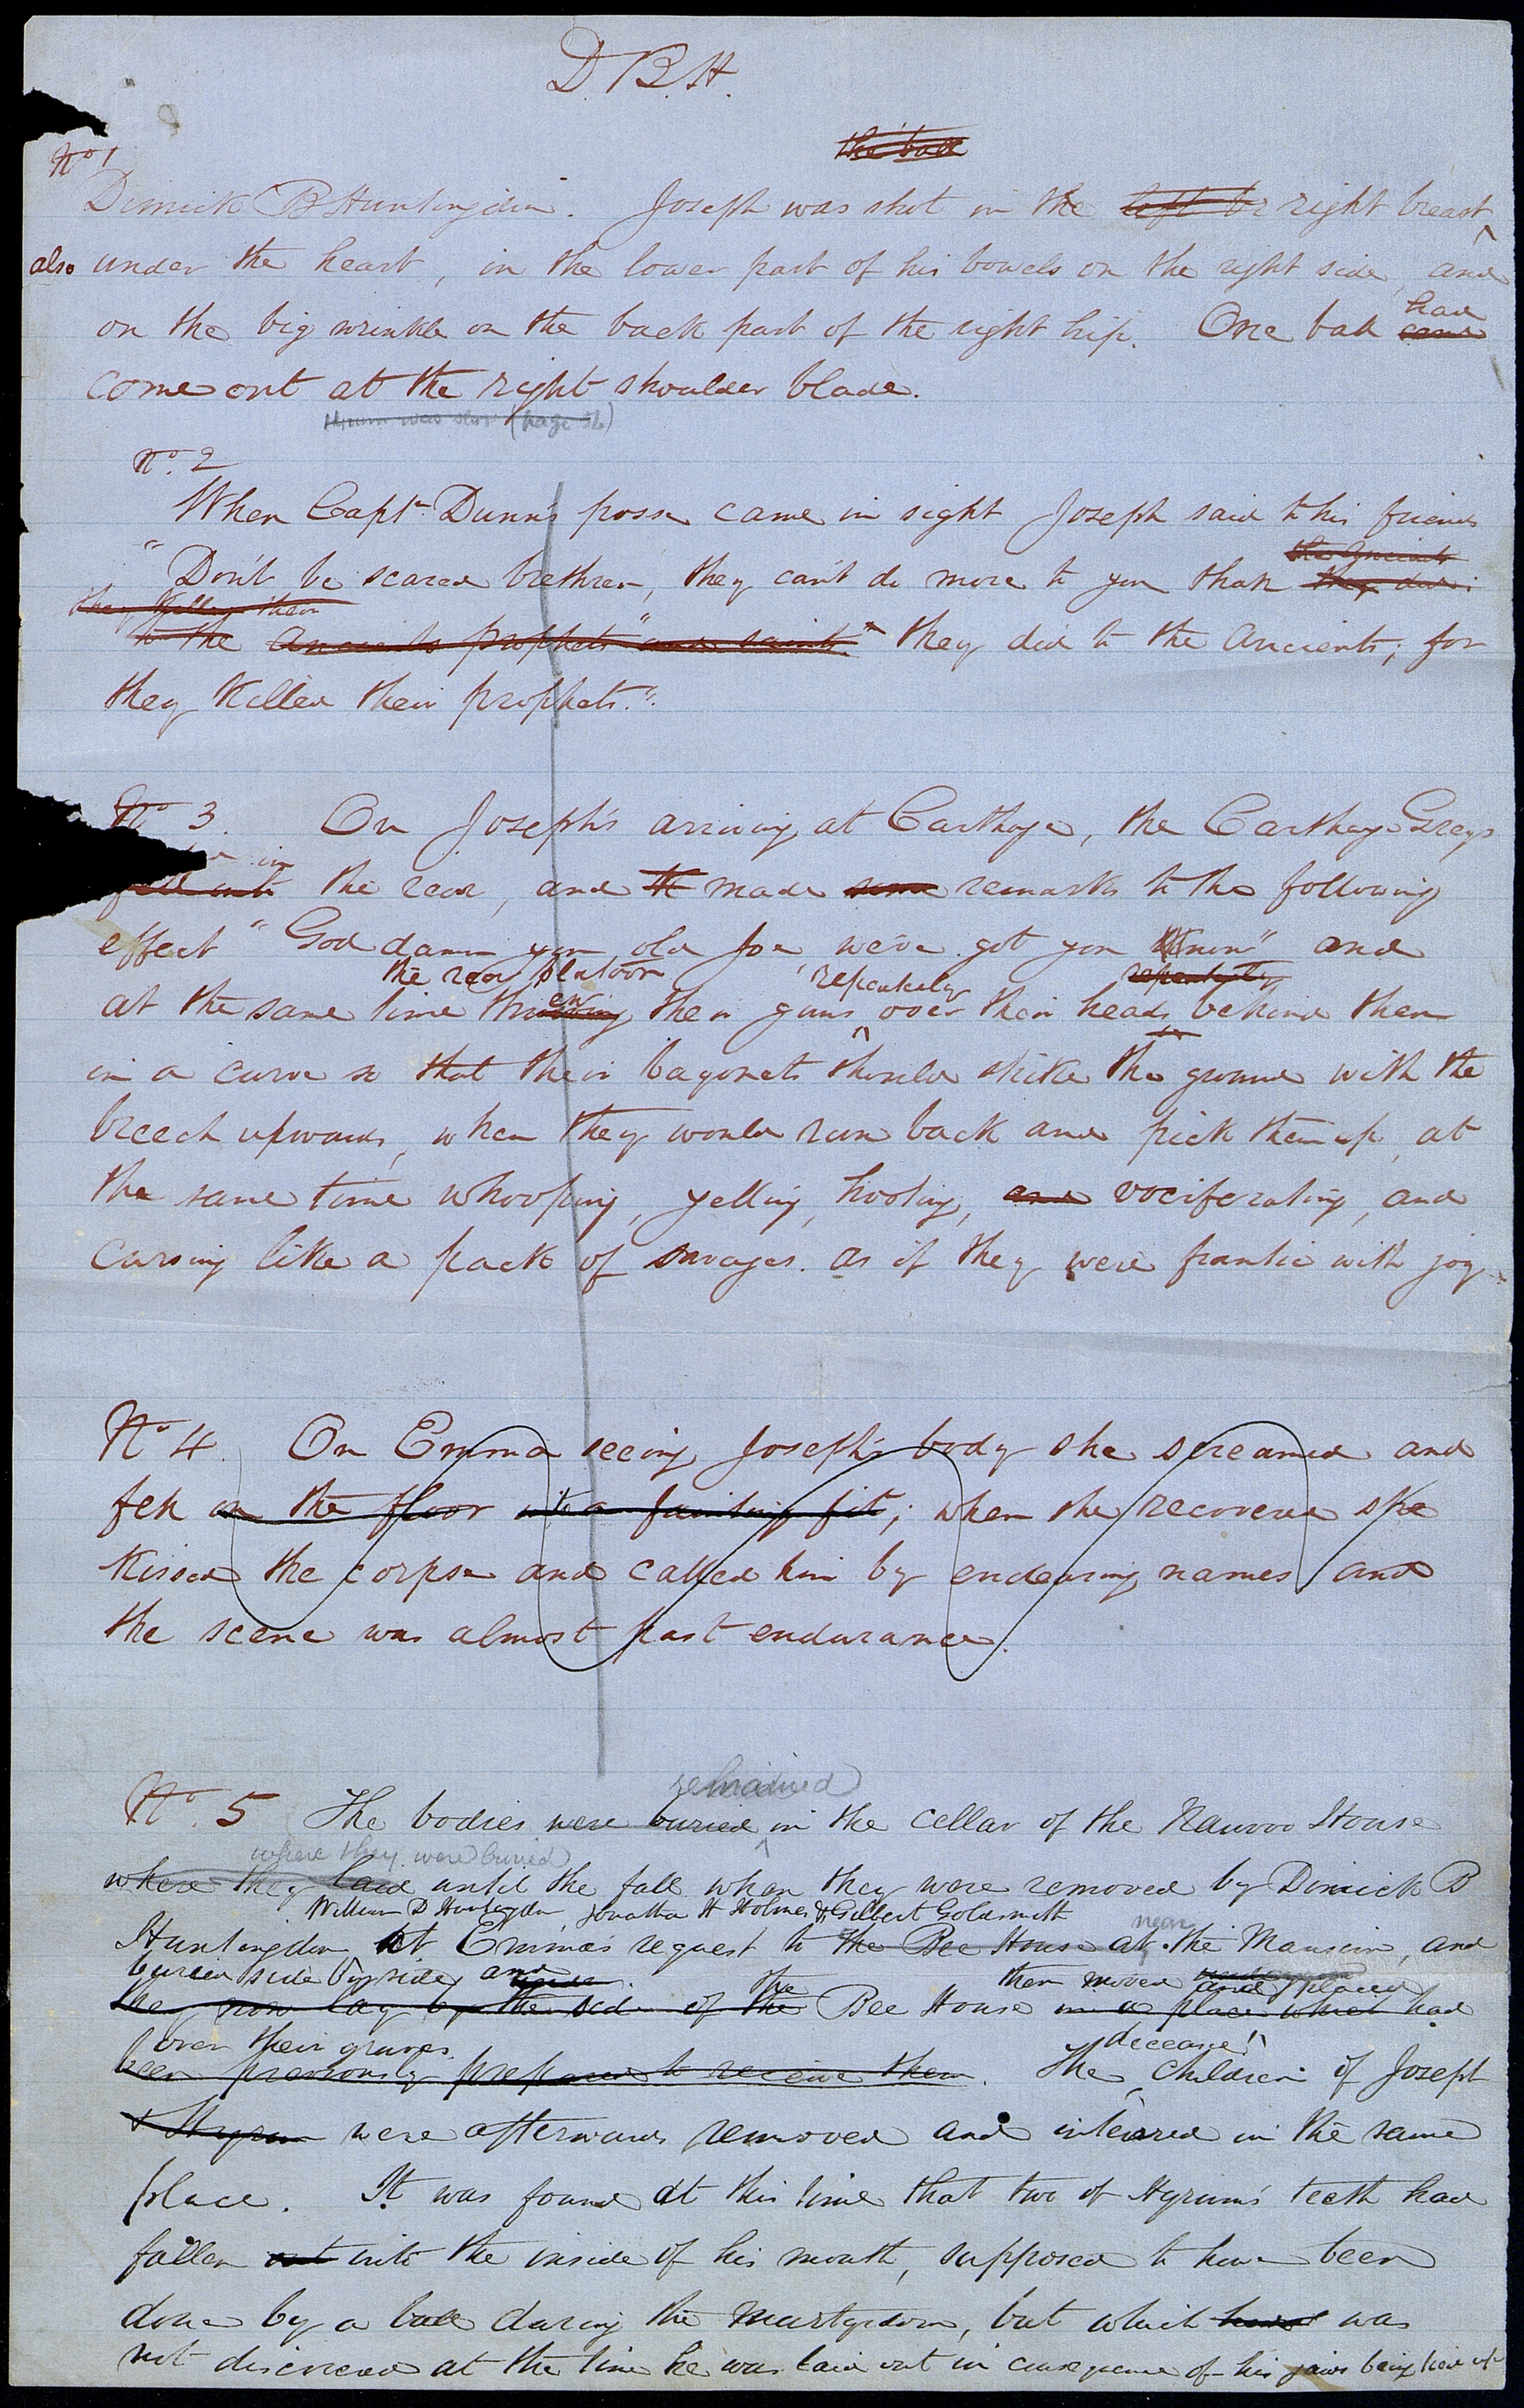 D. B. H.
the ball
No 1
Dimick B Huntingdon. Joseph was shot in the left br right breast
also under the heart, in the lower part of his bowels on the right side, and
had
on the big wrinkle on the back part of the right hip. One ball came
come out at the right shoulder blade.
Hyrum was shot (page 36)
No. 2
When Captn. Dunn's posse came in sight Joseph said to his friends
the Ancients
"Don't be scared brethren, they can't do more to you than they did
they killed their
to the Ancients prophets and saints" they did to the Ancients; for
they killed their prophets."
No 3. On Joseph's arriving at Carthage, the Carthage Greys
in
fell into the rear, and th made some remarks to the following
effect "God damn you old Joe we've got you now" and
the rear platoon repeatedly repeatedly
ew
at the same time throwing their guns over their heads behind them
in a curve so that their bayonets should strike the ground with the
breech upwards, when they would run back and pick them up, at
the same time whooping, yelling, hooting, and vociferating, and
cursing like a pack of savages. as if they were frantic with joy.
No 4. On Emma seeing Joseph's body she screamed and
fell on the floor into a fainting fit; when she recovered she
kissed the corpse and called him by endearing names and
the scene was almost past endurance.
remained
No. 5 The bodies were buried in the cellar of the Nauvoo House
where they were buried
where they laid until the fall when they were removed by Dimick B
William D Huntingdon, Jonathan H Holmes, & Gilbert Goldsmith
near
Huntingdon, At Emma's request to the Bee House at the Mansion, and
buried side by side, and under. the then moved and placed
they now lay by the side of the Bee House in a place which had
over their graves. deceased
been previously prepared to receive them. The children of Joseph
& Hyrum were afterwards removed and interred in the same
place. It was found at this time that two of Hyrum's teeth had
fallen out into the inside of his mouth, supposed to have been
done by a ball during the martyrdom, but which had was
not discovered at the time he was laid out in consequence of his jaws being tied up